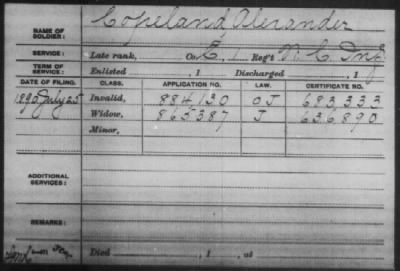 NAME OF SOLDIER: Copeland, Alexander
SERVICE: Late rank, Co. E, 1 Reg't N. C. Inf
TERM OF SERVICE: Enlisted , 1 Discharged , 1
DATE OF FILING. CLASS. APPLICATION NO. LAW. CERTIFICATE NO.
1890 July 25 Invalid, 884130 OJ 683,333
Widow, 865387 J 636890
Minor,
ADDITIONAL SERVICES:
REMARKS:
Died , 1 , at